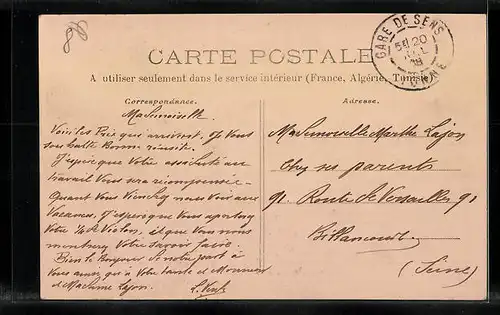 GARE DE SENS
5E 20
YONNE
CARTE POSTALE
A utiliser seulement dans le service intérieur (France, Algérie, Tunisie)
Correspondance.
Mademoiselle.
Voici les Prix qui arrivent. Je Vous
souhaite Bonne réussite.
J'espère que Votre assiduité au
travail Vous sera récompensée.
Quant Vous Viendrez nous Voir aux
Vacances, J'espère que Vous apportez
Votre Violon, et que Vous nous
montrerez Votre Savoir faire.
Bien le Bonjour de notre part à
Vous ainsi qu'à Votre tante et Monsieur
et Madame Lajon.
Adresse.
Mademoiselle Marthe Lajon
Chez ses parents
91 Route de Versailles 91
Billancourt
(Seine)